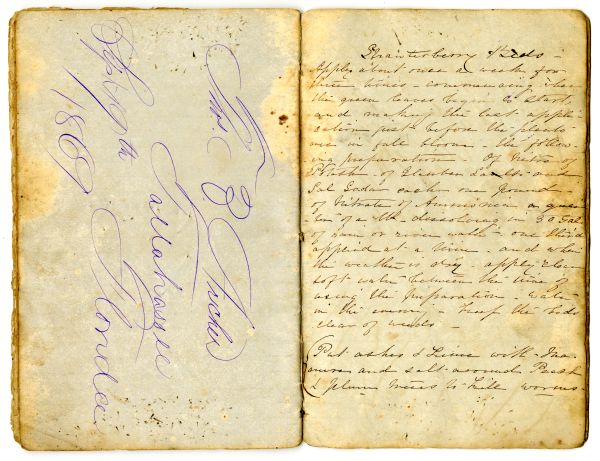 Tallahassee
Florida
1869
Strawberry Beds -
Apply about once a week for
three times - commencing when
the green leaves begin to start,
and making the last appli-
cation just before the plants
are in full bloom - the follow
ing preparation Of Nitrate of
Potash - of Glauber Salts and
Sal Soda each one pound -
of Nitrate of Ammonia a quar
ter of a lb. dissolving in 30 Gal
of rain or river water - one third
applied at a time - and when
the weather is dry - apply clear
soft water between the time of
using the preparation - water
in the evening - Keep the beds
clear of weeds -
Put ashes & Lime with Ma
nure and salt around Peach
& plum trees to kill worms -